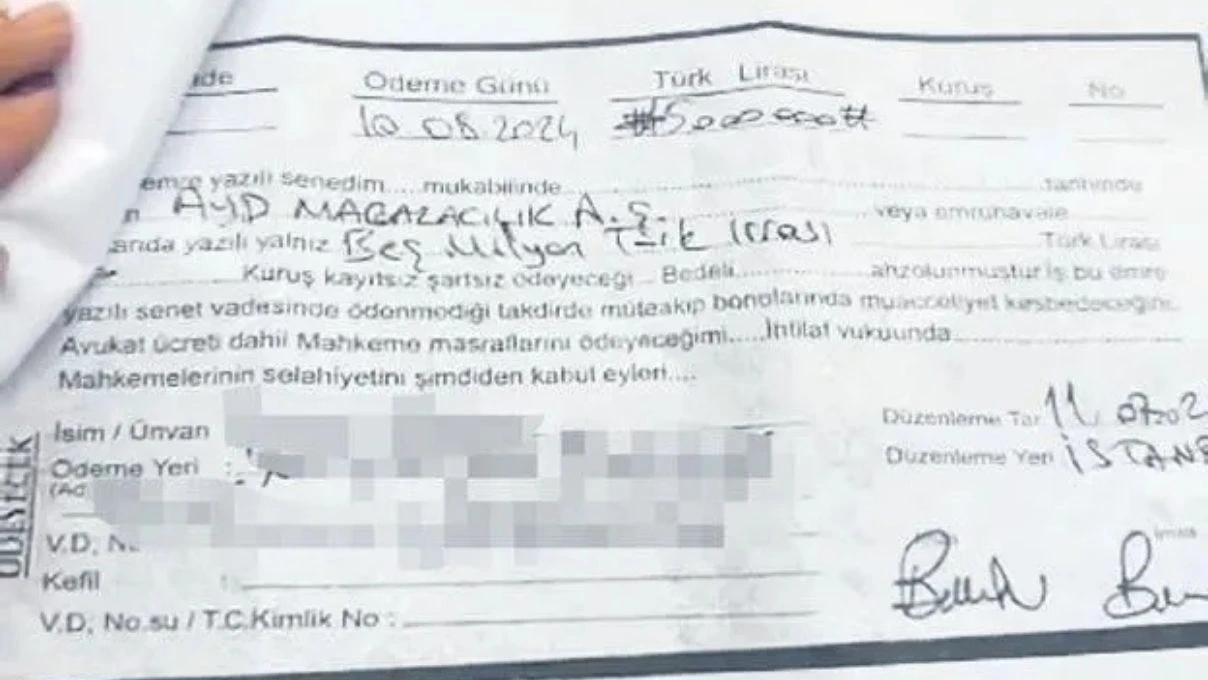 Ödeme Günü Türk Lirası Kuruş No
10 08.2024 #5000000#
yazılı senedim.....mukabilinde
AYD MAĞAZACILIK A.Ş. veya emrühavale
yazılı yalnız Beş Milyon Türk lirası Türk Lirası
Kuruş kayıtsız şartsız ödeyeceği... Bedeli ahzolunmuştur İş bu emre
yazılı senet vadesinde ödenmediği takdirde müteakip bonolarında muacceliyet kesbedeceğini
Avukat ücreti dahil Mahkeme masraflarını ödeyeceğimi.....İhtilaf vukuunda
Mahkemelerinin selahiyetini şimdiden kabul eyleri....
İsim / Ünvan
Düzenleme Tar 11 07.202
Ödeme Yeri :
Düzenleme Yeri İSTANB
V.D.
Kefil :
V.D. No.su / T.C.Kimlik No :